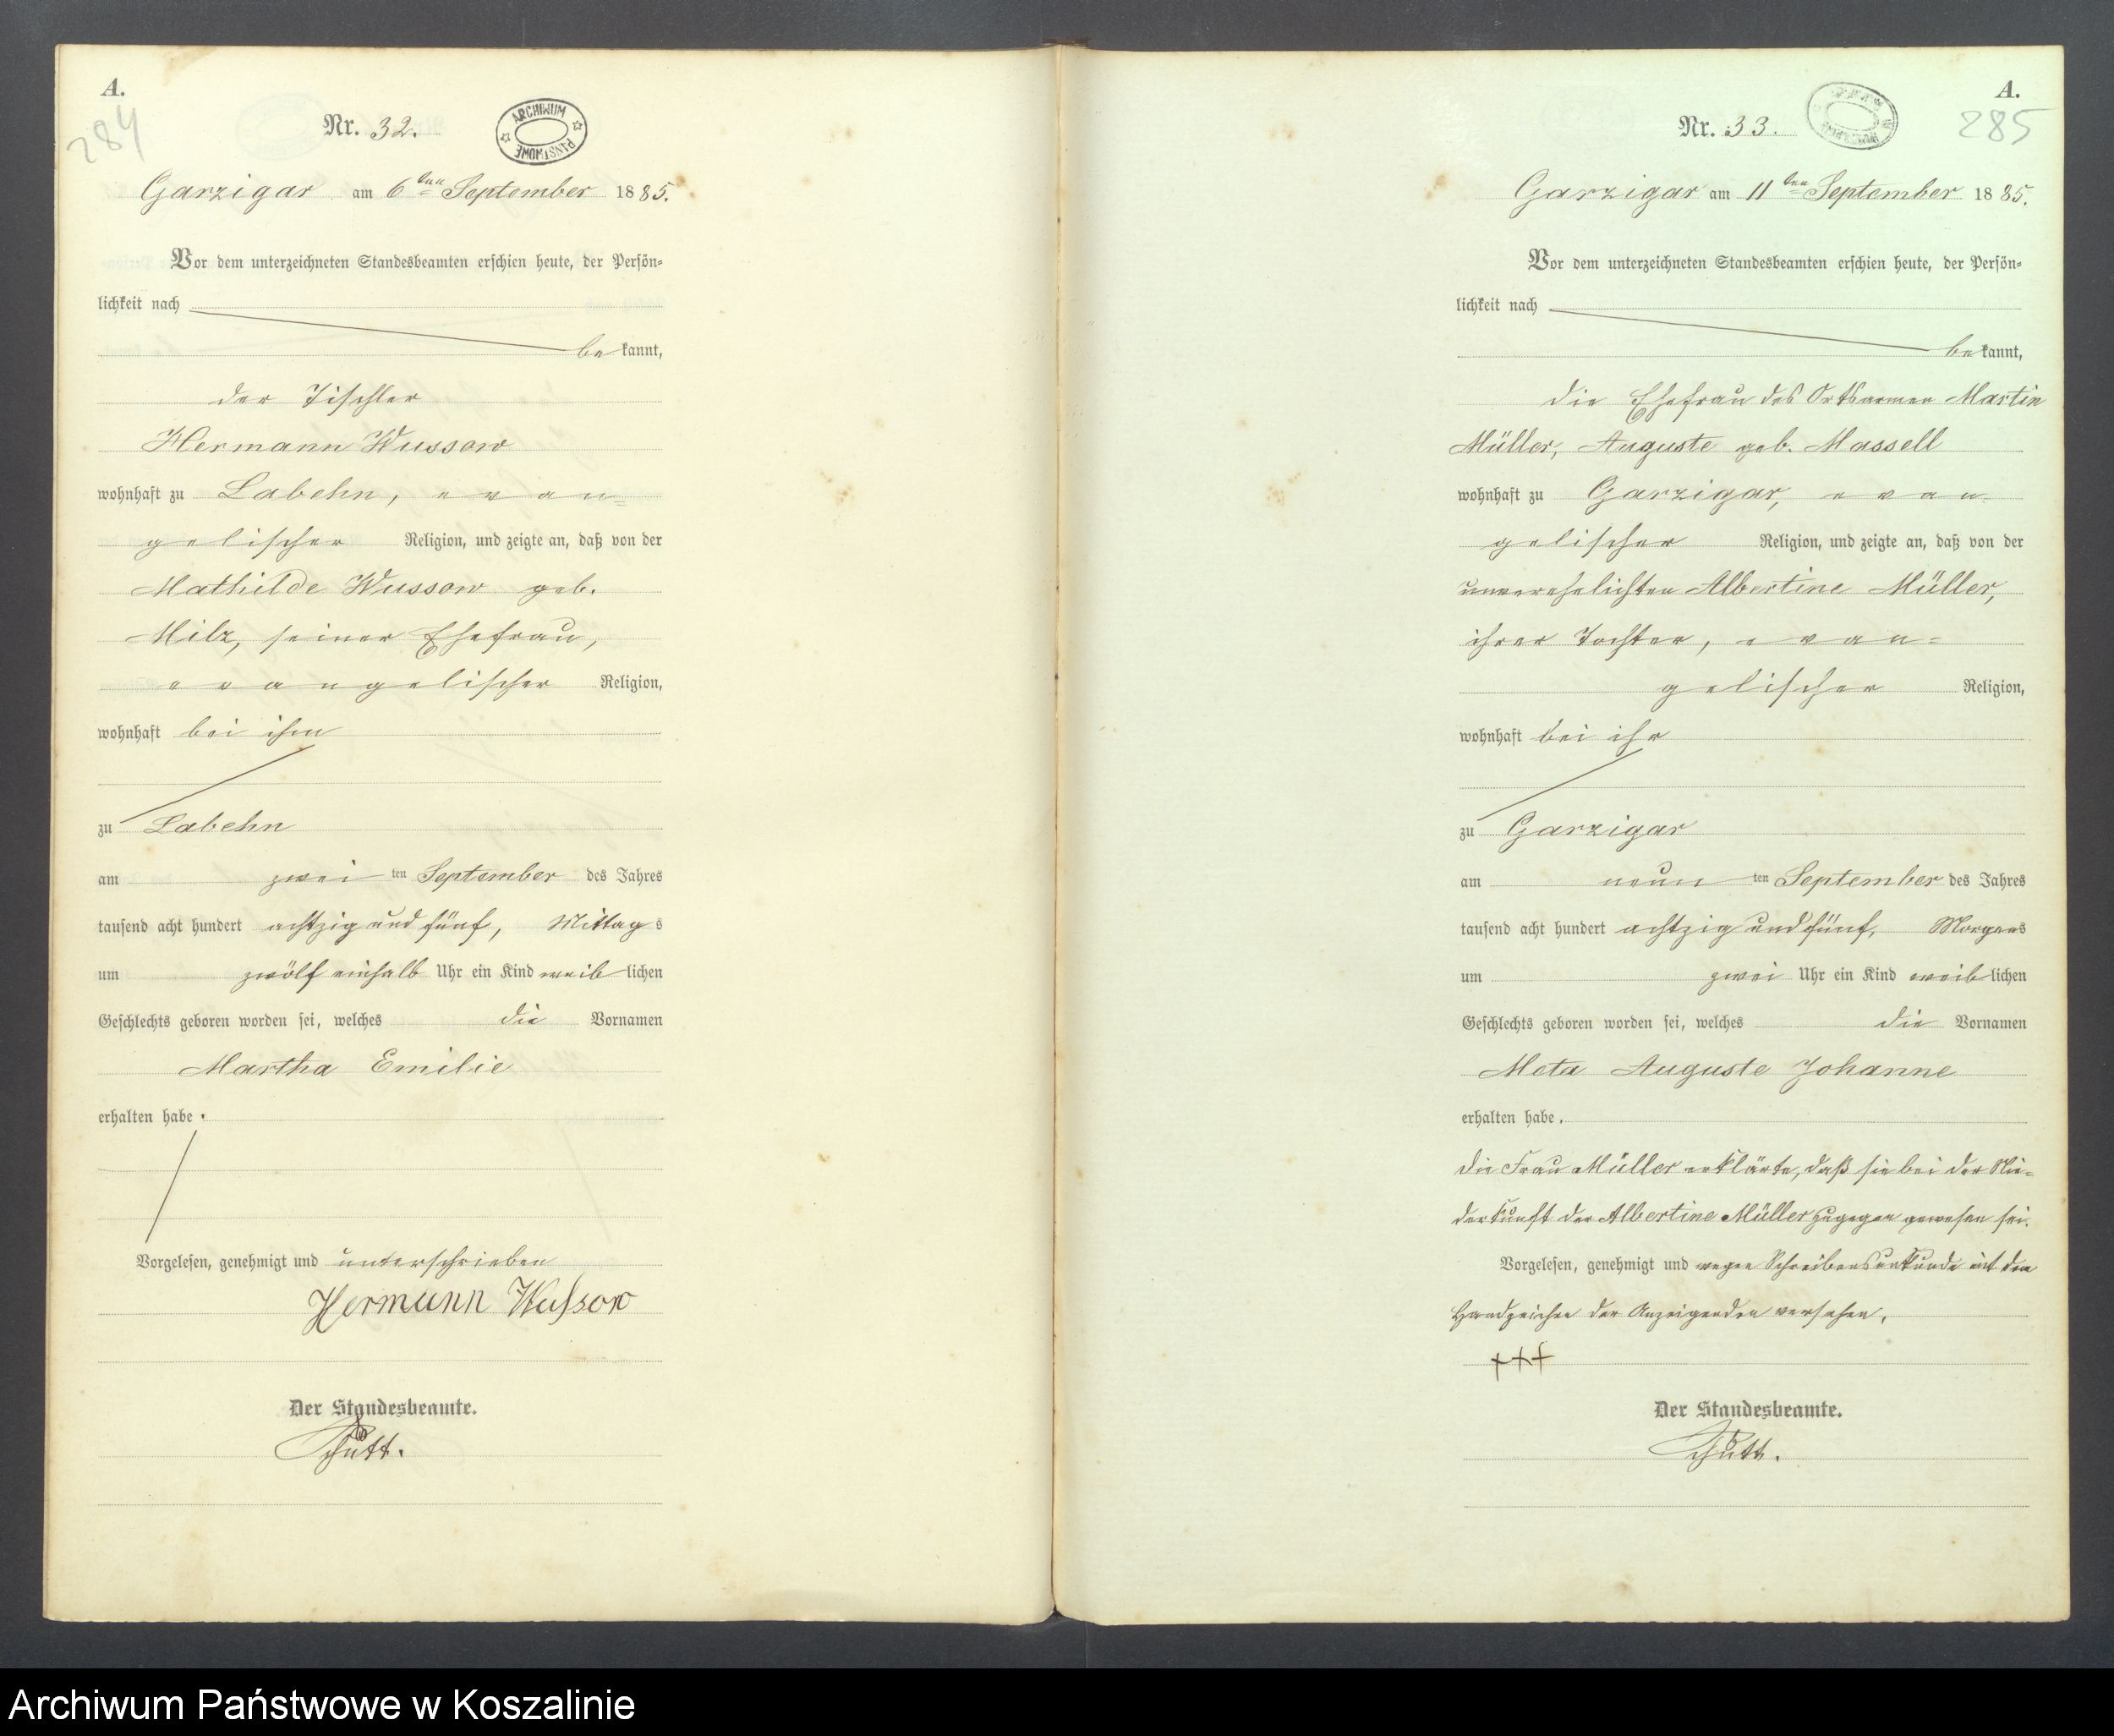 A.
284
Nr. 32.
ARCHIWUM PAŃSTWOWE
Garzigar am 6ten September 1885.
Vor dem unterzeichneten Standesbeamten erschien heute, der Persön-
lichkeit nach
bekannt,
der Tischler
Hermann Wussow
wohnhaft zu Labehn, evan=
gelischer Religion, und zeigte an, daß von der
Mathilde Wussow geb.
Milz, seiner Ehefrau,
evangelischer Religion,
wohnhaft bei ihm
zu Labehn
am zwei ten September des Jahres
tausend acht hundert achtzig und fünf, Mittags
um zwölf einhalb Uhr ein Kind weiblichen
Geschlechts geboren worden sei, welches die Vornamen
Martha Emilie
erhalten habe.
Vorgelesen, genehmigt und unterschrieben
Hermann Wussow
Der Standesbeamte.
Schütt.
A.
285
Nr. 33.
Garzigar am 11ten September 1885.
Vor dem unterzeichneten Standesbeamten erschien heute, der Persön-
lichkeit nach
bekannt,
die Ehefrau des Ortsarmen Martin
Müller, Auguste geb. Massell
wohnhaft zu Garzigar, evan
gelischer Religion, und zeigte an, daß von der
unverehelichten Albertine Müller,
ihrer Tochter, evan=
gelischer Religion,
wohnhaft bei ihr
zu Garzigar
am neun ten September des Jahres
tausend acht hundert achtzig und fünf, Morgens
um zwei Uhr ein Kind weiblichen
Geschlechts geboren worden sei, welches die Vornamen
Meta Auguste Johanne
erhalten habe.
Die Frau Müller erklärte, daß sie bei der Nie=
derkunft der Albertine Müller zugegen gewesen sei.
Vorgelesen, genehmigt und wegen Schreibensunkunde mit dem
Handzeichen der Anzeigenden versehen.
+++
Der Standesbeamte.
Schütt.
Archiwum Państwowe w Koszalinie